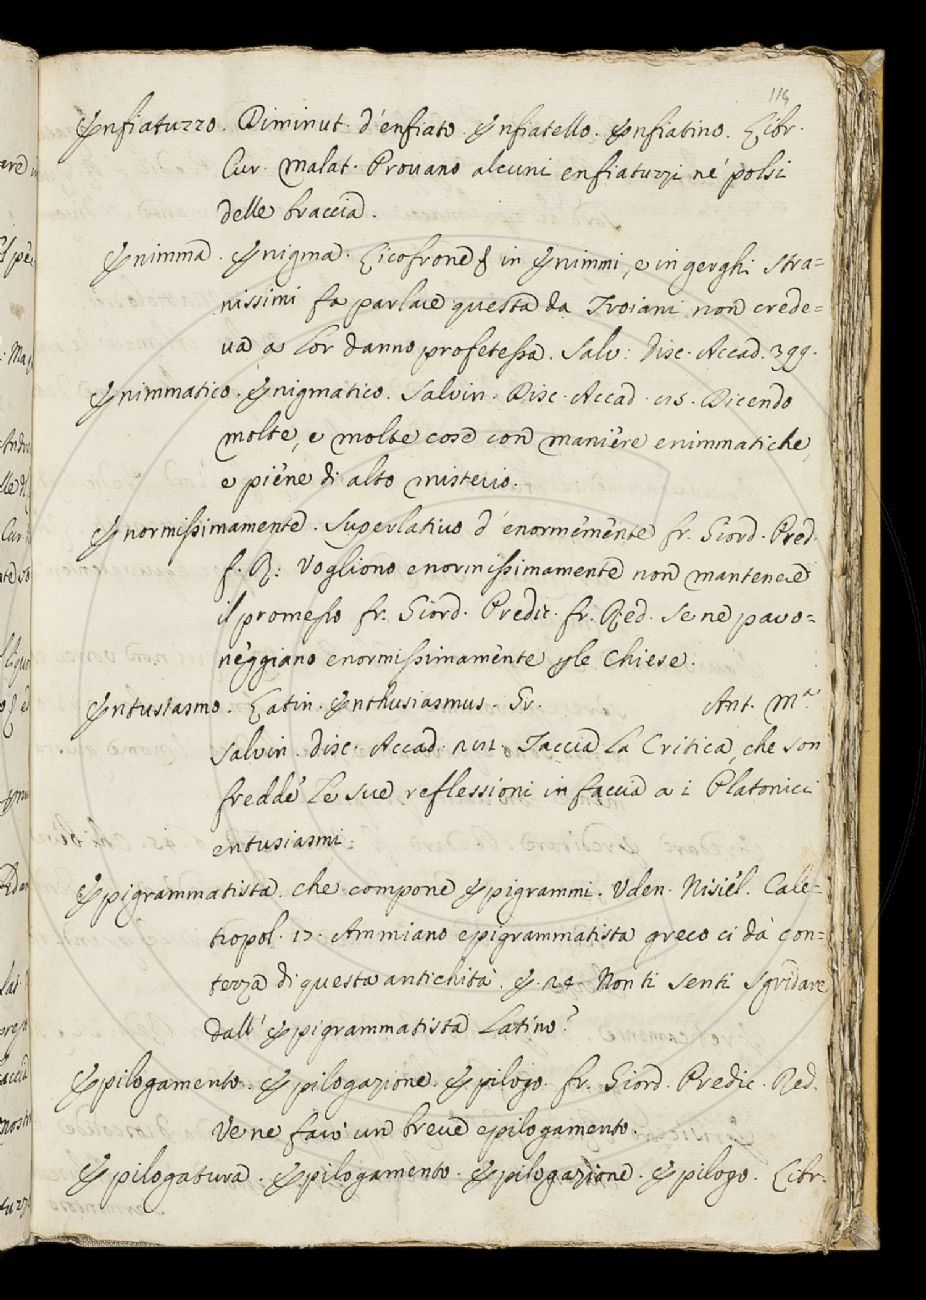 114
Enfiatuzzo. Diminut. d'enfiato. Enfiatello. Enfiatino. Libr.
Cur. malat. Provano alcuni enfiatuzzi né polsi
delle braccia.
Enimma. Enigma. Licofrone in Enimmi, e in gerghi stra=
nissimi fa parlare questa da Troiani non crede=
va a lor danno profetessa. Salv: Disc. Accad. 399.
Enimmatico. Enigmatico. Salvin. Disc. Accad. Dicendo
molte, e molte cose con maniere enimmatiche,
e piène di alto misterio.
Enormissimamente. Superlativo d'enormemente fr. Giord. Pred.
f. R: Vogliono enormissimamente non mantenere
il promesso fr. Giord. Predic. fr. Red. Se ne pavo=
néggiano enormissimamente le Chiese.
Entusiasmo. Latin. Enthusiasmus. Gr. Ant. Mª
Salvin. disc. Accad. Taccia la Critica, che son
fredde le sue reflessioni in faccia a i Platonici
entusiasmi:
Epigrammatista. che compone Epigrammi. Uden. Nisiel. Cale=
tropol. 17. Ammiano epigrammatista greco ci dà con=
tezza di questa antichità. E. 24. Non ti senti sgridare
dall' Epigrammatista Latino?
Epilogamento. Epilogazione. Epilogo. fr. Giord. Predic. Red.
Ve ne farò un breve epilogamento.
Epilogatura. Epilogamento. Epilogazione. Epilogo. Libr.